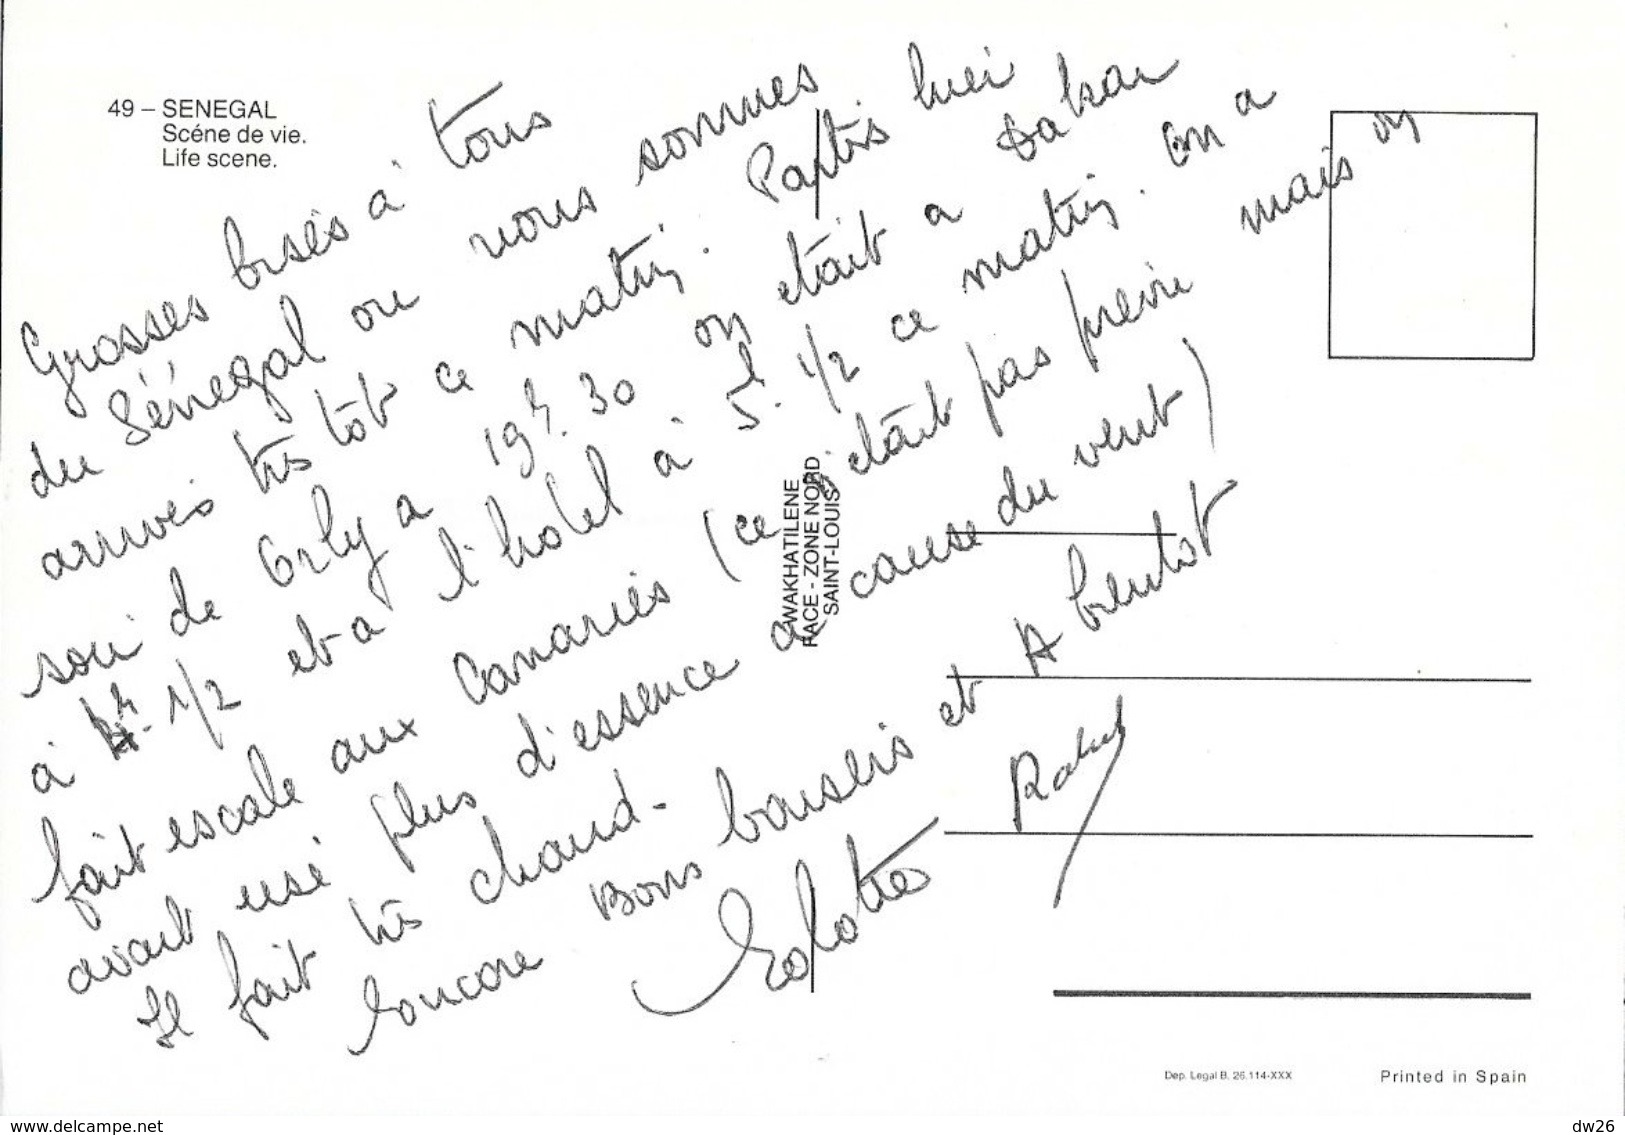 49 – SENEGAL
Scéne de vie.
Life scene.
Grosses bises à tous
du Sénégal ou nous sommes
arrivés très tôt ce matin. Partis hier
soir de Orly a 19h.30 on était a Dakar
à 4h.1/2 et a l'hotel à 5h.1/2 ce matin. On a
fait escale aux Canaries (ce n'était pas prévu mais on
avait usé plus d'essence a cause du vent)
Il fait très chaud-
encore Bons baisers et A bientot
WAKHATILENE
FACE - ZONE NORD
SAINT-LOUIS
Dep. Legal B. 26.114-XXX
Printed in Spain
www.delcampe.net
dw26